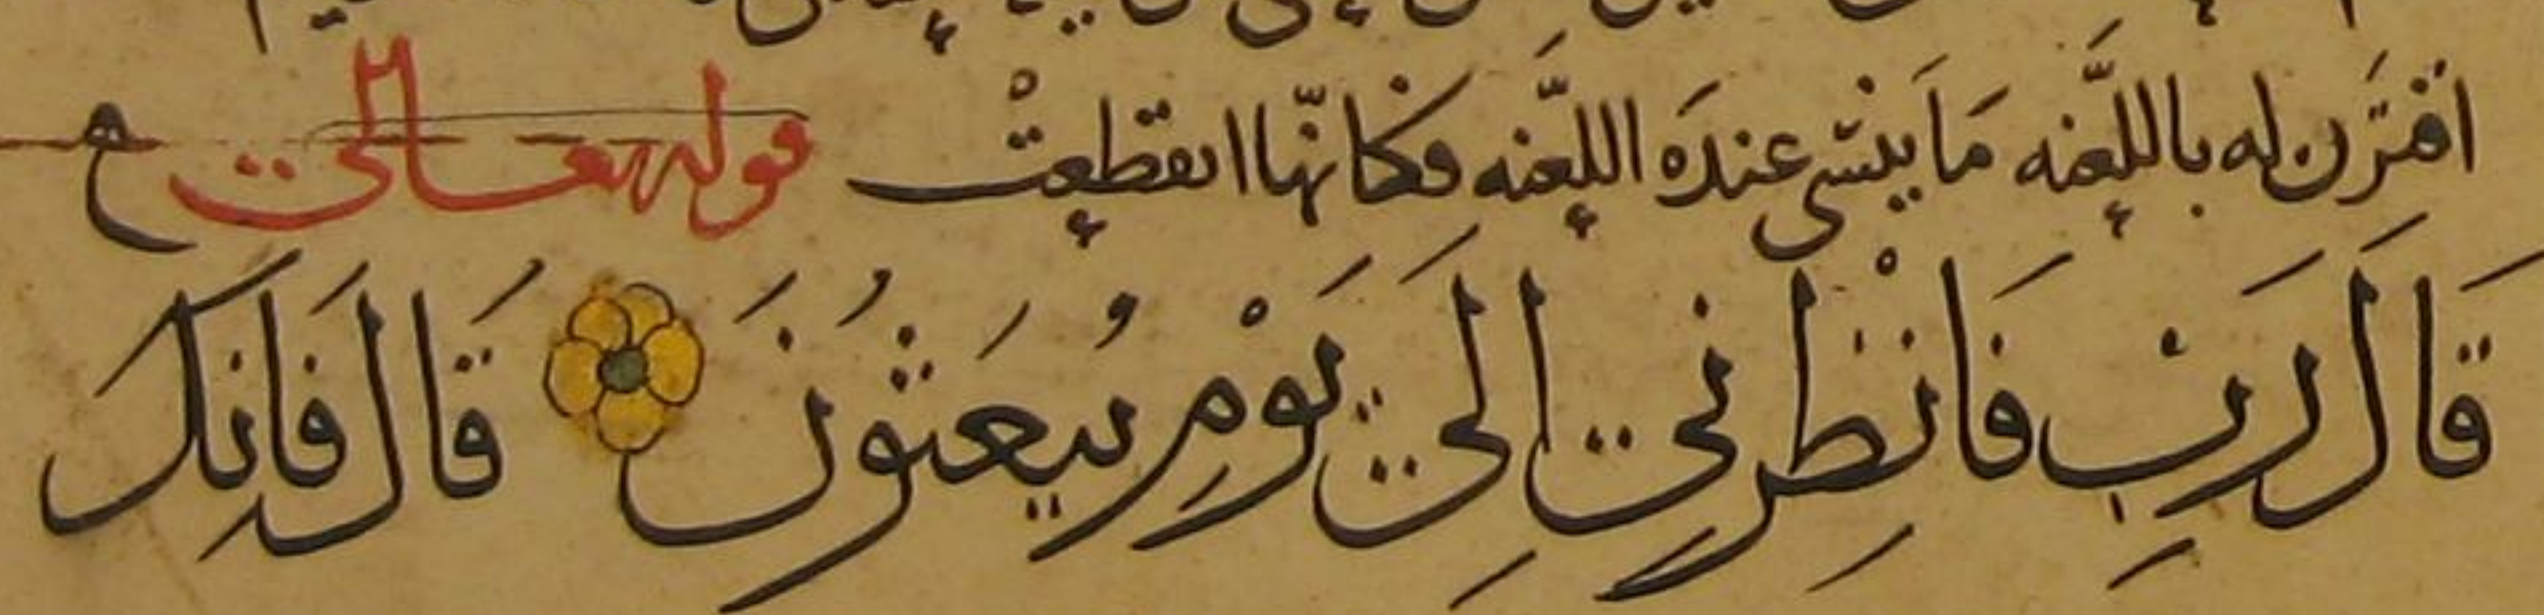 اقترن له باللعنه مَا ينسى عندَه اللّعنه فكانّها انقطعتْ قوله تعالى
قَالَ رَبِّ فَانْظِرْنِي اِلَى يَوْمِ يُبْعَثُونَ قَالَ فَاِنَّكَ